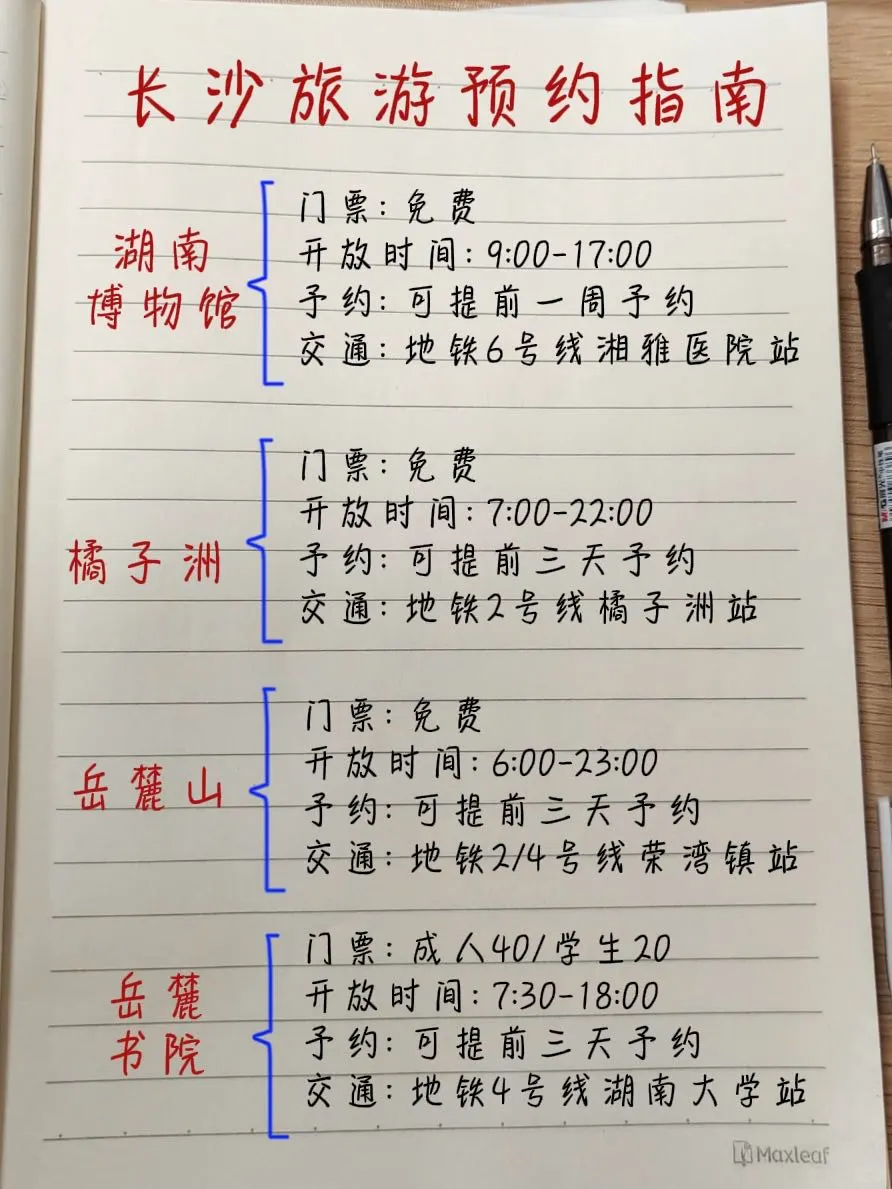 长沙旅游预约指南
湖南
博物馆
门票:免费
开放时间:9:00-17:00
予约:可提前一周予约
交通:地铁6号线湘雅医院站
橘子洲
门票:免费
开放时间:7:00-22:00
予约:可提前三天予约
交通:地铁2号线橘子洲站
岳麓山
门票:免费
开放时间:6:00-23:00
予约:可提前三天予约
交通:地铁2/4号线荣湾镇站
岳麓
书院
门票:成人40/学生20
开放时间:7:30-18:00
予约:可提前三天予约
交通:地铁4号线湖南大学站
Maxleaf